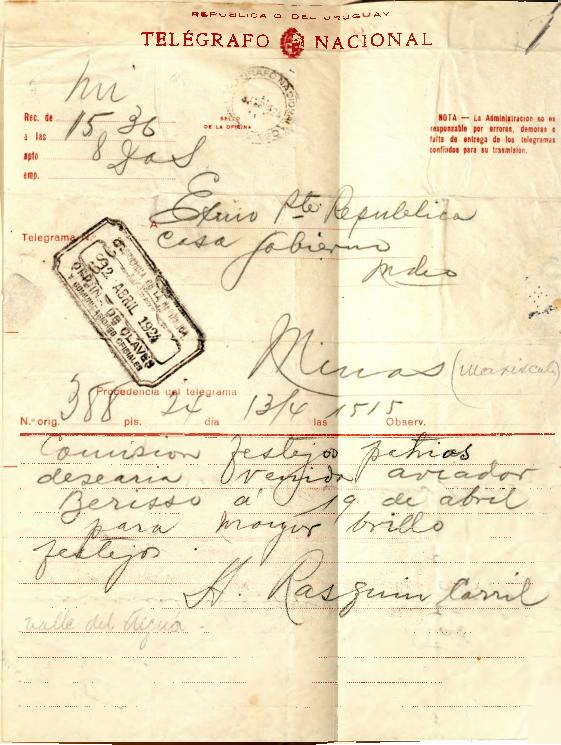 REPUBLICA O. DEL URUGUAY
TELÉGRAFO NACIONAL
Rec. de
a las 15 36
apto 8 Das
emp.
SELLO
DE LA OFICINA
NOTA — La Administracion no es
responsable por errores, demoras o
falta de entrega de los telegramas
confiados para su trasmision.
A Exmo Pte Republica
Telegrama N.° Casa Gobierno
Mdeo
PRESIDENCIA DE LA REPUBLICA
ABRIL 1924
DEPTAL. DE CLAVES
Y COMUNICACIONES OFICIALES
Minas (Mariscala)
Procedencia del telegrama
N.° orig. 388 pls. 24 dia 13/4 las 1515 Observ.
Comision festejos patrios
desearia venida aviador
Berisso á 19 de abril
para mayor brillo
festejos.
H. Rasguin Carril
valle del Aigua.